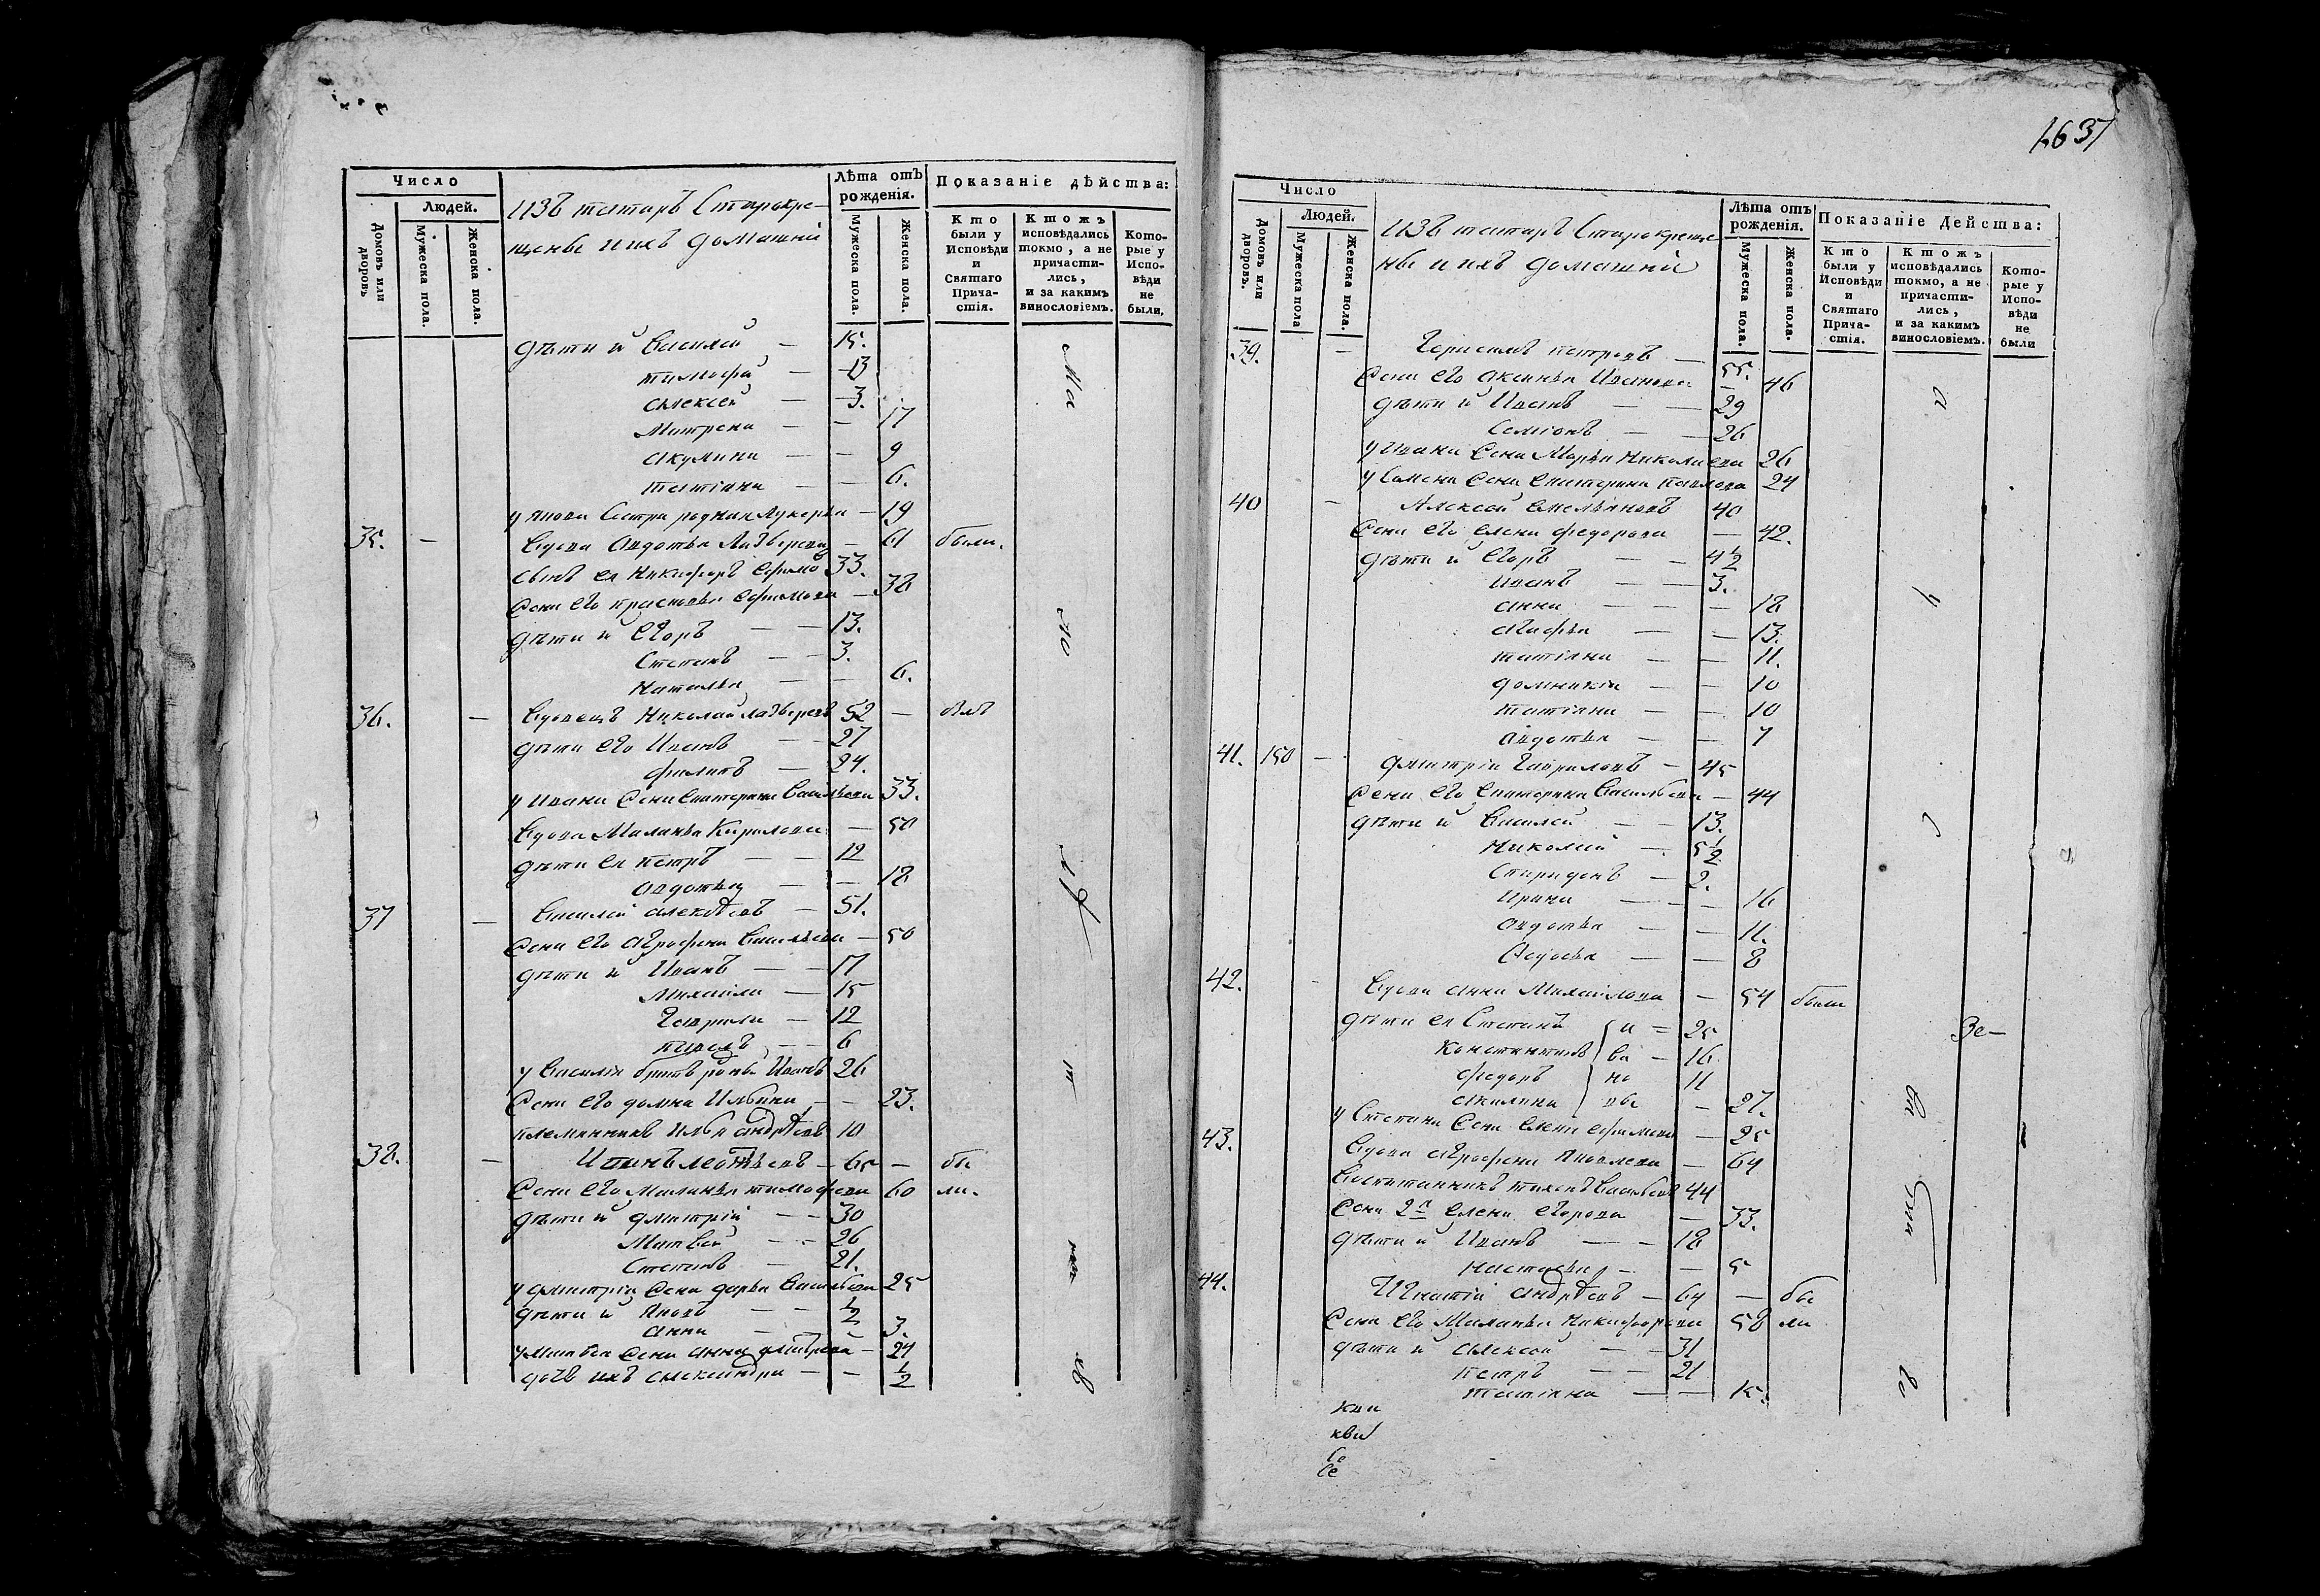 Число
Людей.
Домовъ или дворовъ
Мужеска пола.
Женска пола.
изъ татаръ Старокре-
щенье и ихъ домашніи
Лѣта отъ рожденія.
Мужеска пола.
Женска пола.
Показаніе дѣйства:
Кто были у Исповѣди и Святаго Прича-стія.
Ктожъ исповѣдались токмо, а не причасти-лись, и за какимъ винословіемъ.
Кото-рые у Испо-вѣди не были.
дѣти и Василей — 15.
тимофей — 13
Алексей — 3.
Матрена — — 17
Акулина — — 9
татіана — — 6.
у Якова Сестра родная Лукерья — 19
35. — Вдова Авдотья — 61 были.
Сынъ ея Никифоръ Ефимо 33.
Жена его Ефимова — 38
дѣти и Егоръ — — 13.
Степанъ — — 3.
Наталья — — 6.
36. — Вдовецъ Николай 52 — былъ
дѣти его Иванъ — — 27
филипъ — 24.
у Ивана Жена Екатерина Васильева 33.
Вдова Маланья Кирилова — 50
дѣти ея петръ — — 12
Авдотья — — 18
37 — Василей Алексѣевъ — 51.
Жена его Агрофена Васильева — 50
дѣти и Иванъ — — 17
Михайла — 15
Гаврила — 12
павелъ — — 6
у Василія братъ родны Иванъ 26
Жена его домна Ильина — — 23.
племянникъ Илья Андрѣевъ 10
38. — Иванъ — 65 — бы
Жена его Маланья тимофеева 60 ли.
дѣти и дмитрій — — 30
Матвей — — 26
Степанъ — 21.
у дмитрія Жена дарья Васильева 25
дѣти и Яковъ — — 1/2
Анна — 3.
у Матвея Жена Анна — 24
дочь ихъ Александра — — 1/2
Число
Людей.
Домовъ или дворовъ.
Мужеска пола
Женска пола.
изъ татаръ Старокреще
нье и ихъ домашніи
Лѣта отъ рожденія.
Мужеска пола.
Женска пола.
Показаніе Дейсмва:
Кто были у Исповѣди и Святаго Прича-стія.
Ктожъ исповѣдались токмо, а не причасти-лись, и за какимъ винословіемъ.
Кото-рые у Испо-вѣди не были
39. — петровъ — 55.
Жена его Аксинья Иванова — 46
дѣти и Иванъ — — 29
Семіонъ — — 26
у Ивана Жена Марья Николаева 26
у Семена Жена Екатерина павлова 24
40 — Алексей Емельяновъ 40
Жена его Елена федорова — 42.
дѣти и Егоръ — — 4 1/2
Иванъ — — 3.
Анна — — — 18
Агафья — — 13.
татіана — — 11.
домникія — — 10
татіана — — 10
Авдотья — — 7
41. 150 — дмитрій Гавриловъ — 45
Жена его Екатерина Васильева — 44
дѣти и Василей — — 13.
Николай — 5 1/2
Спиридонъ — 2.
Ирина — — 16
Авдотья — — 11.
— — 8
42. — Вдова Анна Михайлова — 54 были
дѣти ея Степанъ и = 25
Константинъ ва — 16
федоръ но 11
Акилина вы — 27.
у Степана Жена Елена Ефимова — 25
43. Вдова Агрофена Яковлева — 64
Васильевъ 44
Жена 2я Елена Егорова — 33.
дѣти и Иванъ — — 18
Настасья — — 5
44. Игнатій Андрѣевъ — 64 — бы
Жена его Маланья Никифорова 58 ли
дѣти и Алексей — — 31
петръ — — 21
татіана — — 15.